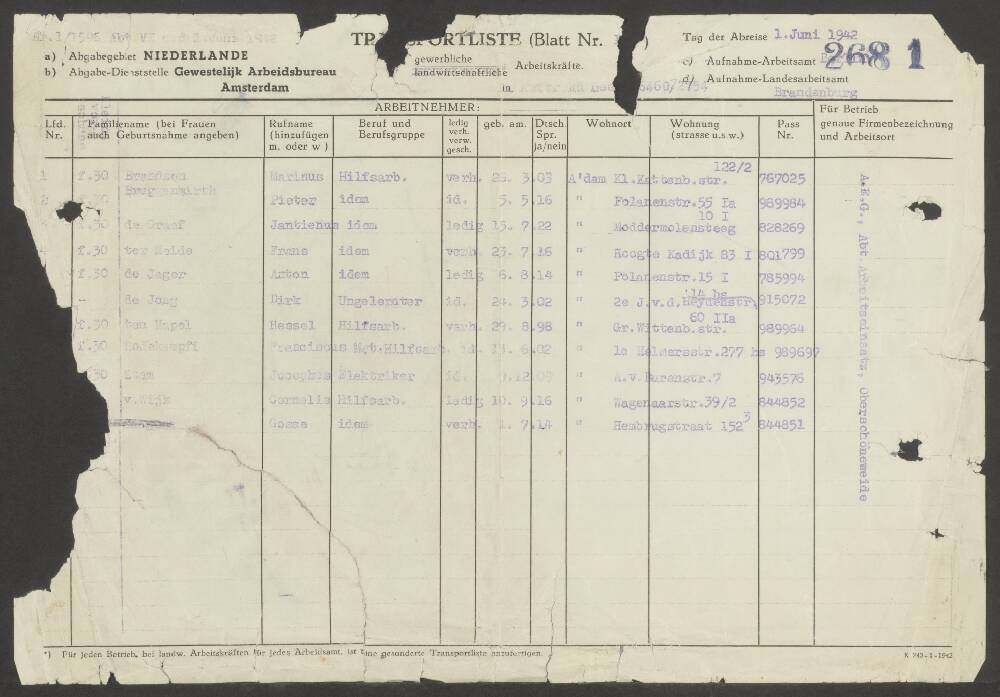 TRANSPORTLISTE (Blatt Nr. )
Tag der Abreise 1.Juni 1942
268 1
a) Abgabegebiet NIEDERLANDE
b) Abgabe-Dienststelle Gewestelijk Arbeidsbureau
Amsterdam
gewerbliche
landwirtschaftliche Arbeitskräfte.
in
c) Aufnahme-Arbeitsamt
d) Aufnahme-Landesarbeitsamt
Brandenburg
ARBEITNEHMER:
Lfd. Nr. Familienname (bei Frauen auch Geburtsname angeben) Rufname (hinzufügen m. oder w) Beruf und Berufsgruppe ledig verh. verw. gesch. geb. am. Dtsch. Spr. ja/nein Wohnort Wohnung (strasse u.s.w.) Pass Nr. Für Betrieb genaue Firmenbezeichnung und Arbeitsort
1 f.30 Marinus Hilfsarb. verh. 3.03 A'dam Kl.Kattenb.str. 122/2 767025
Pieter idem id. 3. 5.16 " Polanenstr.55 Ia 989984
de Graaf Jantienus idem ledig 15. 7.22 " Moddermolensteeg 10 I 828269
ter Heide Frans idem verh. 23. 7.16 " Hoogte Kadijk 83 I 801799
f.30 de Jager Anton idem ledig 6. 8.14 " Polanenstr.15 I 785994
de Jong Dirk Ungelernter id. 24. 3.02 " 2e J.v.d.Heydenstr. 14 hs 915072
f.30 ten Napel Hessel Hilfsarb. verh. 29. 8.98 " Gr.Wittenb.str. 60 IIa 989964
f.30 Franciscus Hilfsarb. id. 6.02 " 1e Helmersstr.277 hs 989697
Josephus Elektriker id. 12.09 " A.v.Burenstr.7 943576
v.Wijk Cornelis Hilfsarb. ledig 10. 9.16 " Wagenaarstr.39/2 844852
Gosse idem verh. 1. 7.14 " Hembrugstraat 152 3 844851
A.E.G., Abt. Arbeitseinsatz, Oberschöneweide
*) Für jeden Betrieb, bei landw. Arbeitskräften für jedes Arbeidsamt, ist eine gesonderte Transportliste anzufertigen.
K 743-1-1942